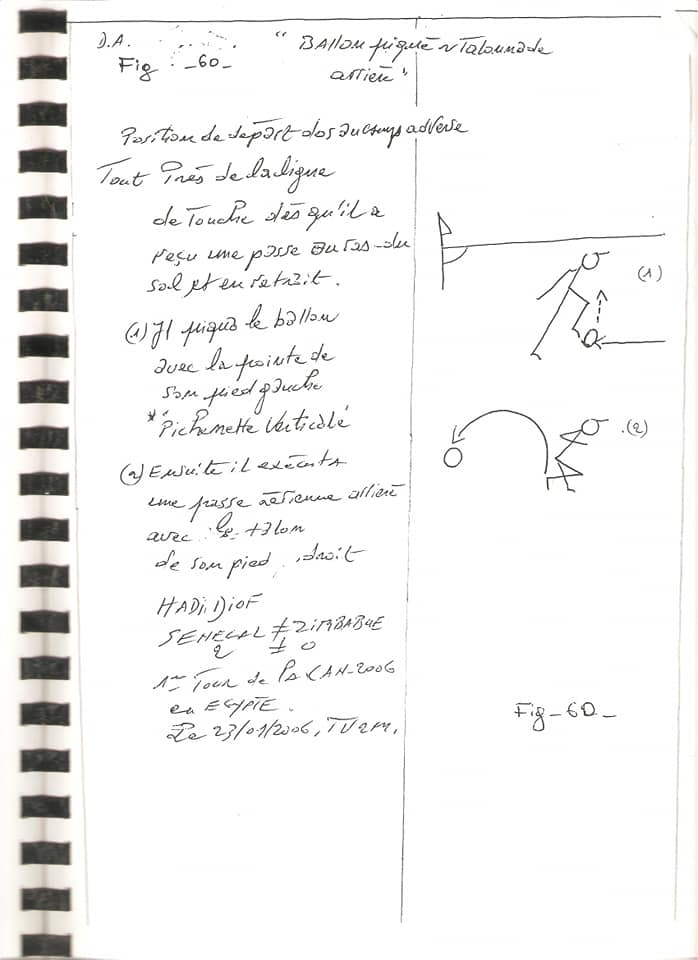 D.A.
Fig : _60_
"BAllon piqué ~ Talonnade
arrière"
Position de départ dos au camp adverse
Tout Près de la ligne
de Touche dès qu'il a
reçu une passe au ras-du
sol et en retrait.
(1) Il piqua le ballon
avec la pointe de
son pied gauche
*"Pichenette Verticale
(2) Ensuite il exécuta
une passe aérienne arrière
avec le talon
de son pied droit
HADji DioF
SENEGAL ≠ ZIMBABUE
2 ± 0
1er Tour de la CAN-2006
en EGYPTE.
Le 23/01/2006, TV2M.
(1)
.(2)
Fig_60_